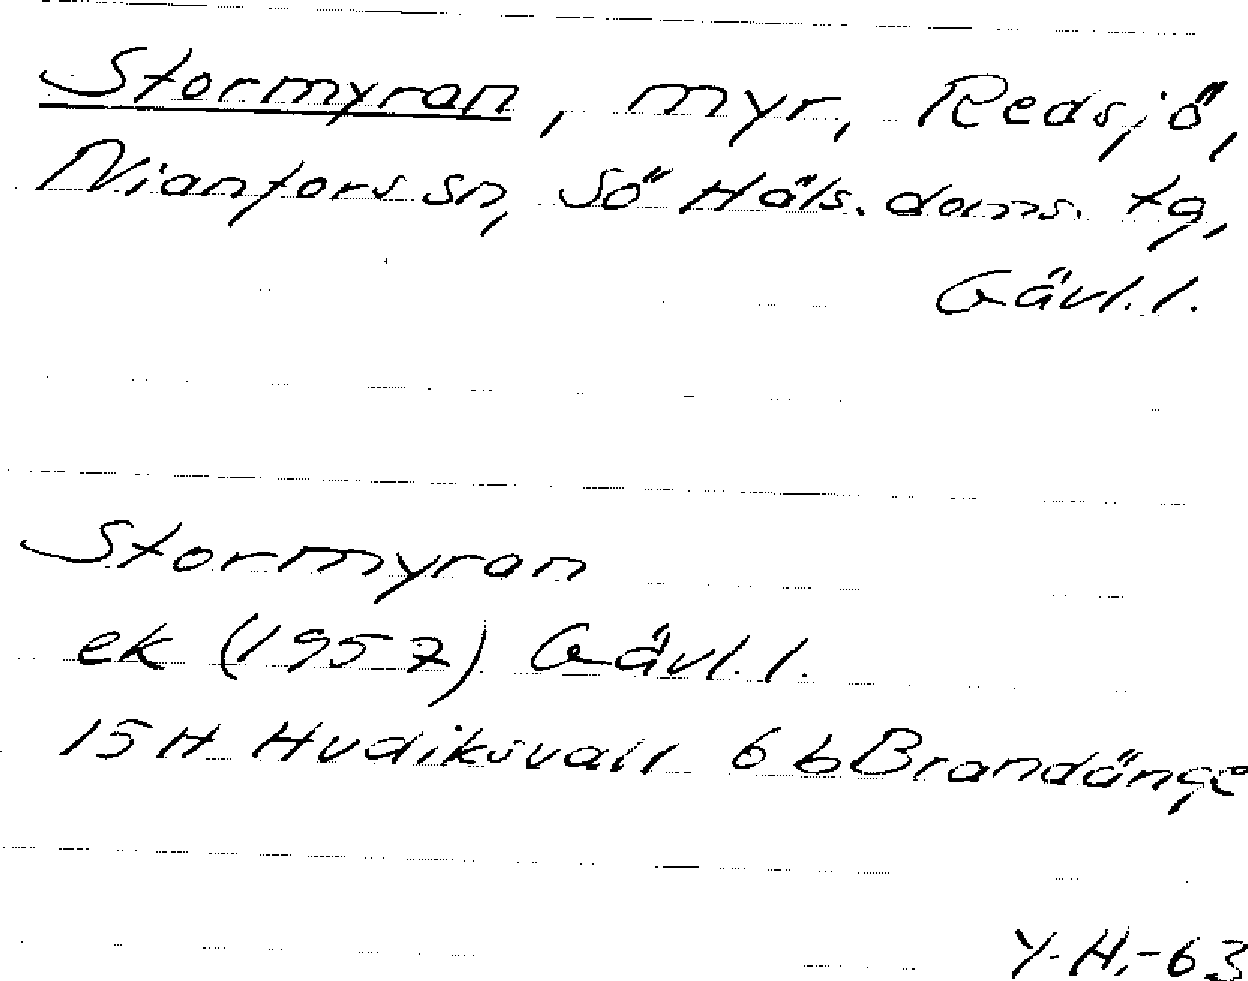 Stormyran, myr, Redsjö,
Nianfors sn, Sö Häls. doms. tg,
Gävl. l.
Stormyran
ek (1957) Gävl. l.
15H Hudiksvall 6b Brandänge
Y.H.-63